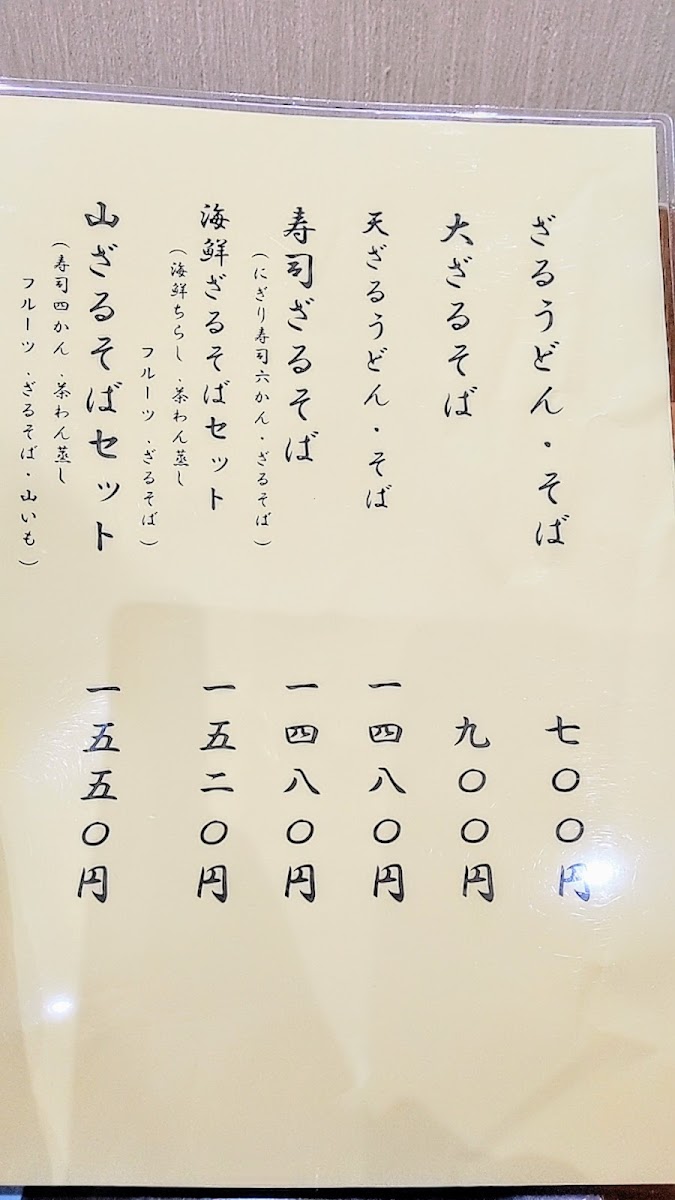 ざるうどん・そば
七〇〇円
大ざるそば
九〇〇円
天ざるうどん・そば
一四八〇円
寿司ざるそば
一四八〇円
（にぎり寿司六かん・ざるそば）
海鮮ざるそばセット
一五二〇円
（海鮮ちらし・茶わん蒸し
フルーツ・ざるそば）
山ざるそばセット
一五五〇円
（寿司四かん・茶わん蒸し
フルーツ・ざるそば・山いも）